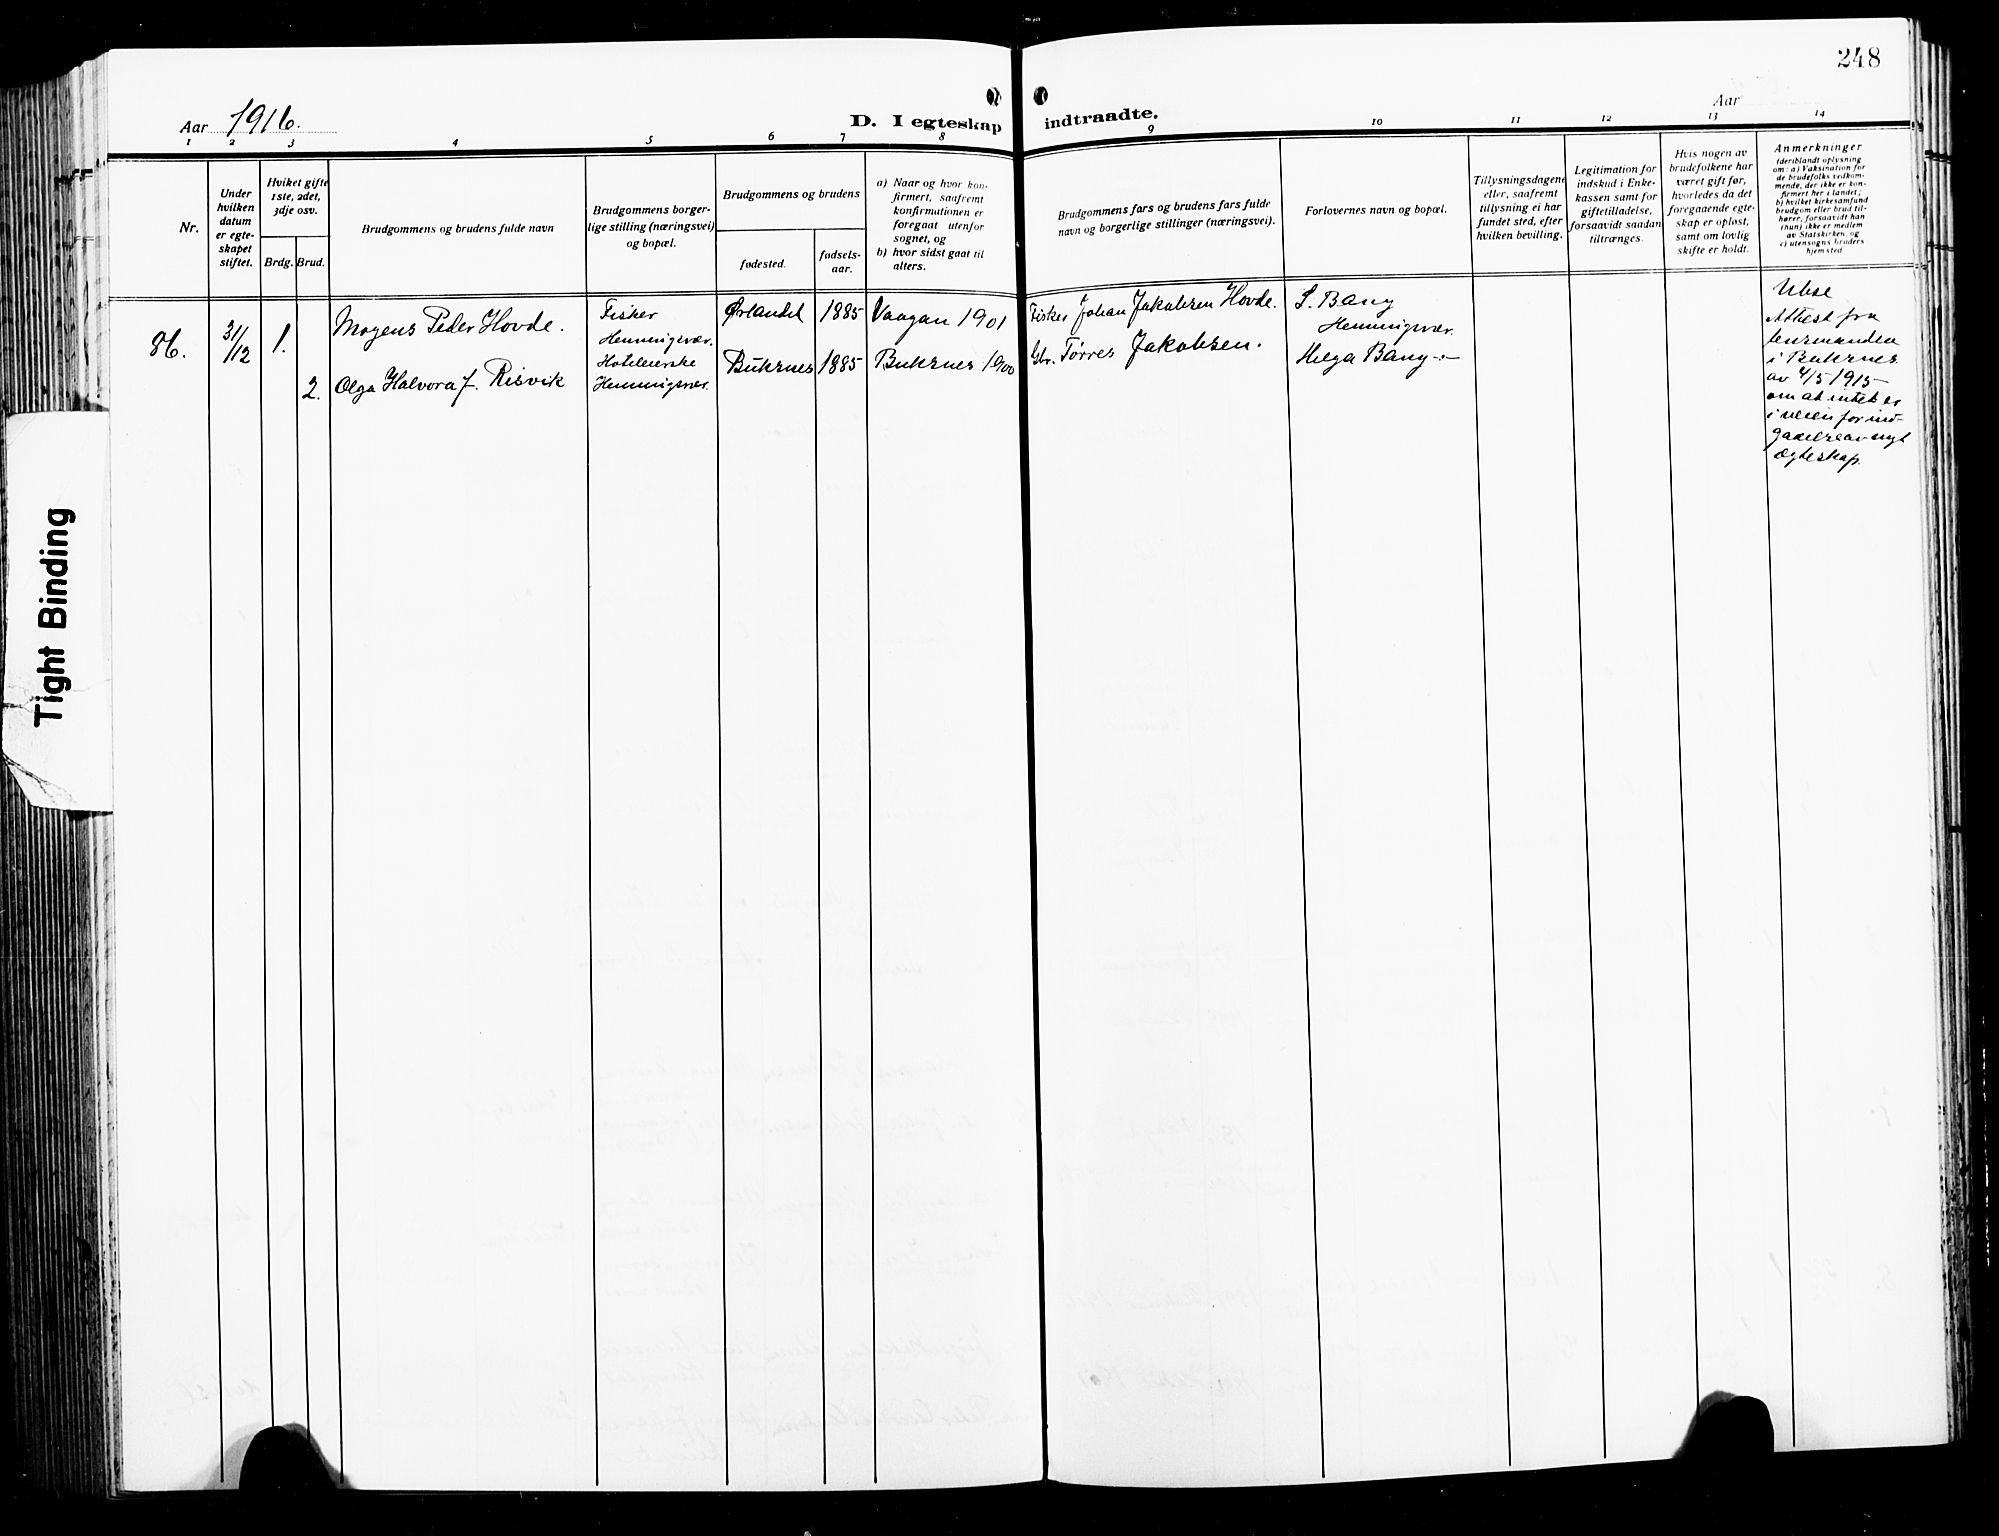 248
Aar 1916.
D. I egteskap
indtraadte.
Aar
1 2 3 4 5 6 7 8 9 10 11 12 13 14
Nr.
Under
hvilken
datum
er egte-
skapet
stiftet.
Hviket gifte
1ste, 2det,
3dje osv.
Brdg.
Brud.
Brudgommens og brudens fulde navn
Brudgommens borger-
lige stilling (næringsvei)
og bopæl.
Brudgommens og brudens
fødested.
fødsels-
aar.
a) Naar og hvor kon-
firmert, saafremt
konfirmationen er
foregaat utenfor
sognet, og
b) hvor sidst gaat til
alters.
Brudgommens fars og brudens fars fulde
navn og borgerlige stillinger (næringsvei).
Forlovernes navn og bopæl.
Tillysningsdagene
eller, saafremt
tillysning ei har
fundet sted, efter
hvilken bevilling.
Legitimation for
indskud i Enke-
kassen samt for
giftetilladelse,
forsaavidt saadan
tiltrænges.
Hvis nogen av
brudefolkene har
været gift før,
hvorledes da det
foregaaende egte-
skap er opløst,
samt om lovlig
skifte er holdt.
Anmerkninger
(deriblandt oplysning
om: a) Vaksination for
de brudefolks vedkom-
mende, der ikke er kon-
firmert her i landet;
b) hvilket kirkesamfund
brudgom eller brud til-
hører, forsaavidt han
(hun) ikke er medlem
av Statskirken, og
c) utensogns bruders
hjemsted
86.
31/12
1.
Mogens Peder Hovde.
Fisker
Henningsvær.
Ørlandet
1885
Vaagan 1901
Fisker Johan Jakobsen Hovde.
S. Bang
Henningsvær.
2.
Olga Halvora f. Risvik
Hoteleierske
Henningsvær.
Buksnes
1885
Buksnes 1900
Gbr. Tørres Jakobsen.
Helga Bang -"-
Attest fra
lensmanden
i Buksnes
av 4/5 1915
om at intet er
i veien for ind-
gaaelse av nyt
ægteskap.
Tight Binding